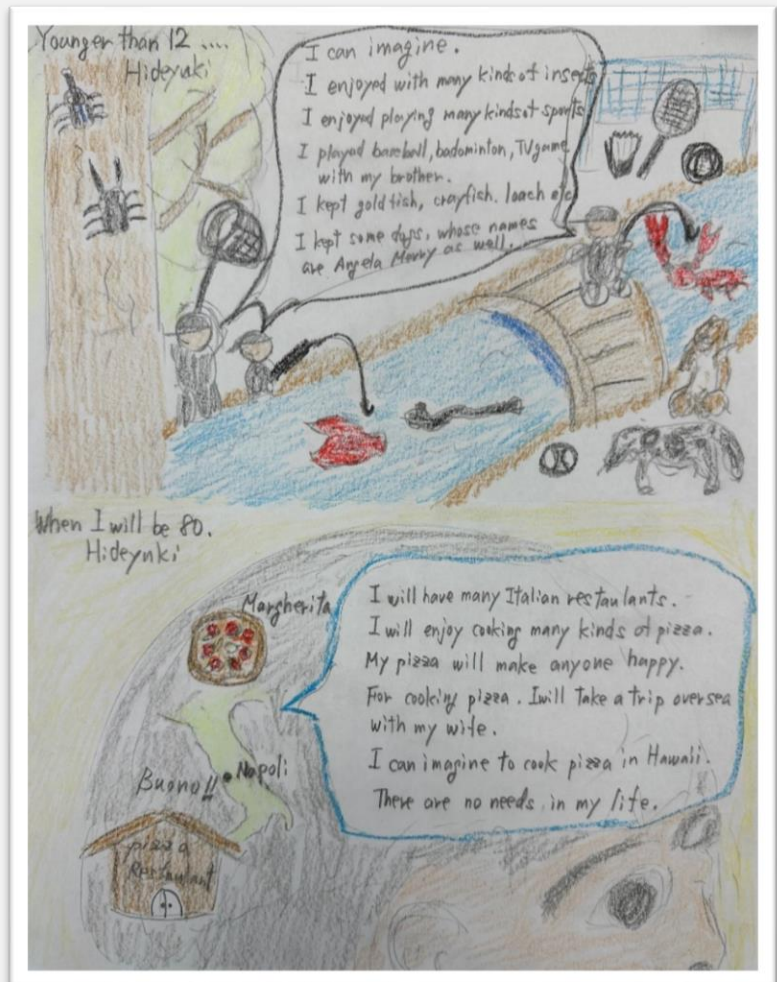 Younger than 12 ....
Hideyuki
I can imagine.
I enjoyed with many kinds of insects
I enjoyed playing many kinds of sports
I played baseball, badominton, TV game
with my brother.
I kept gold fish, crayfish. loach etc
I kept some dogs, whose names
are Angela Merry as well.
When I will be 80.
Hideyuki
Margherita
I will have many Italian restaulants.
I will enjoy cooking many kinds of pizza.
My pizza will make anyone happy.
For cooking pizza. I will take a trip oversea
with my wife.
I can imagine to cook pizza in Hawaii.
There are no needs in my life.
Napoli
Buono!!
pizza
Restaurant